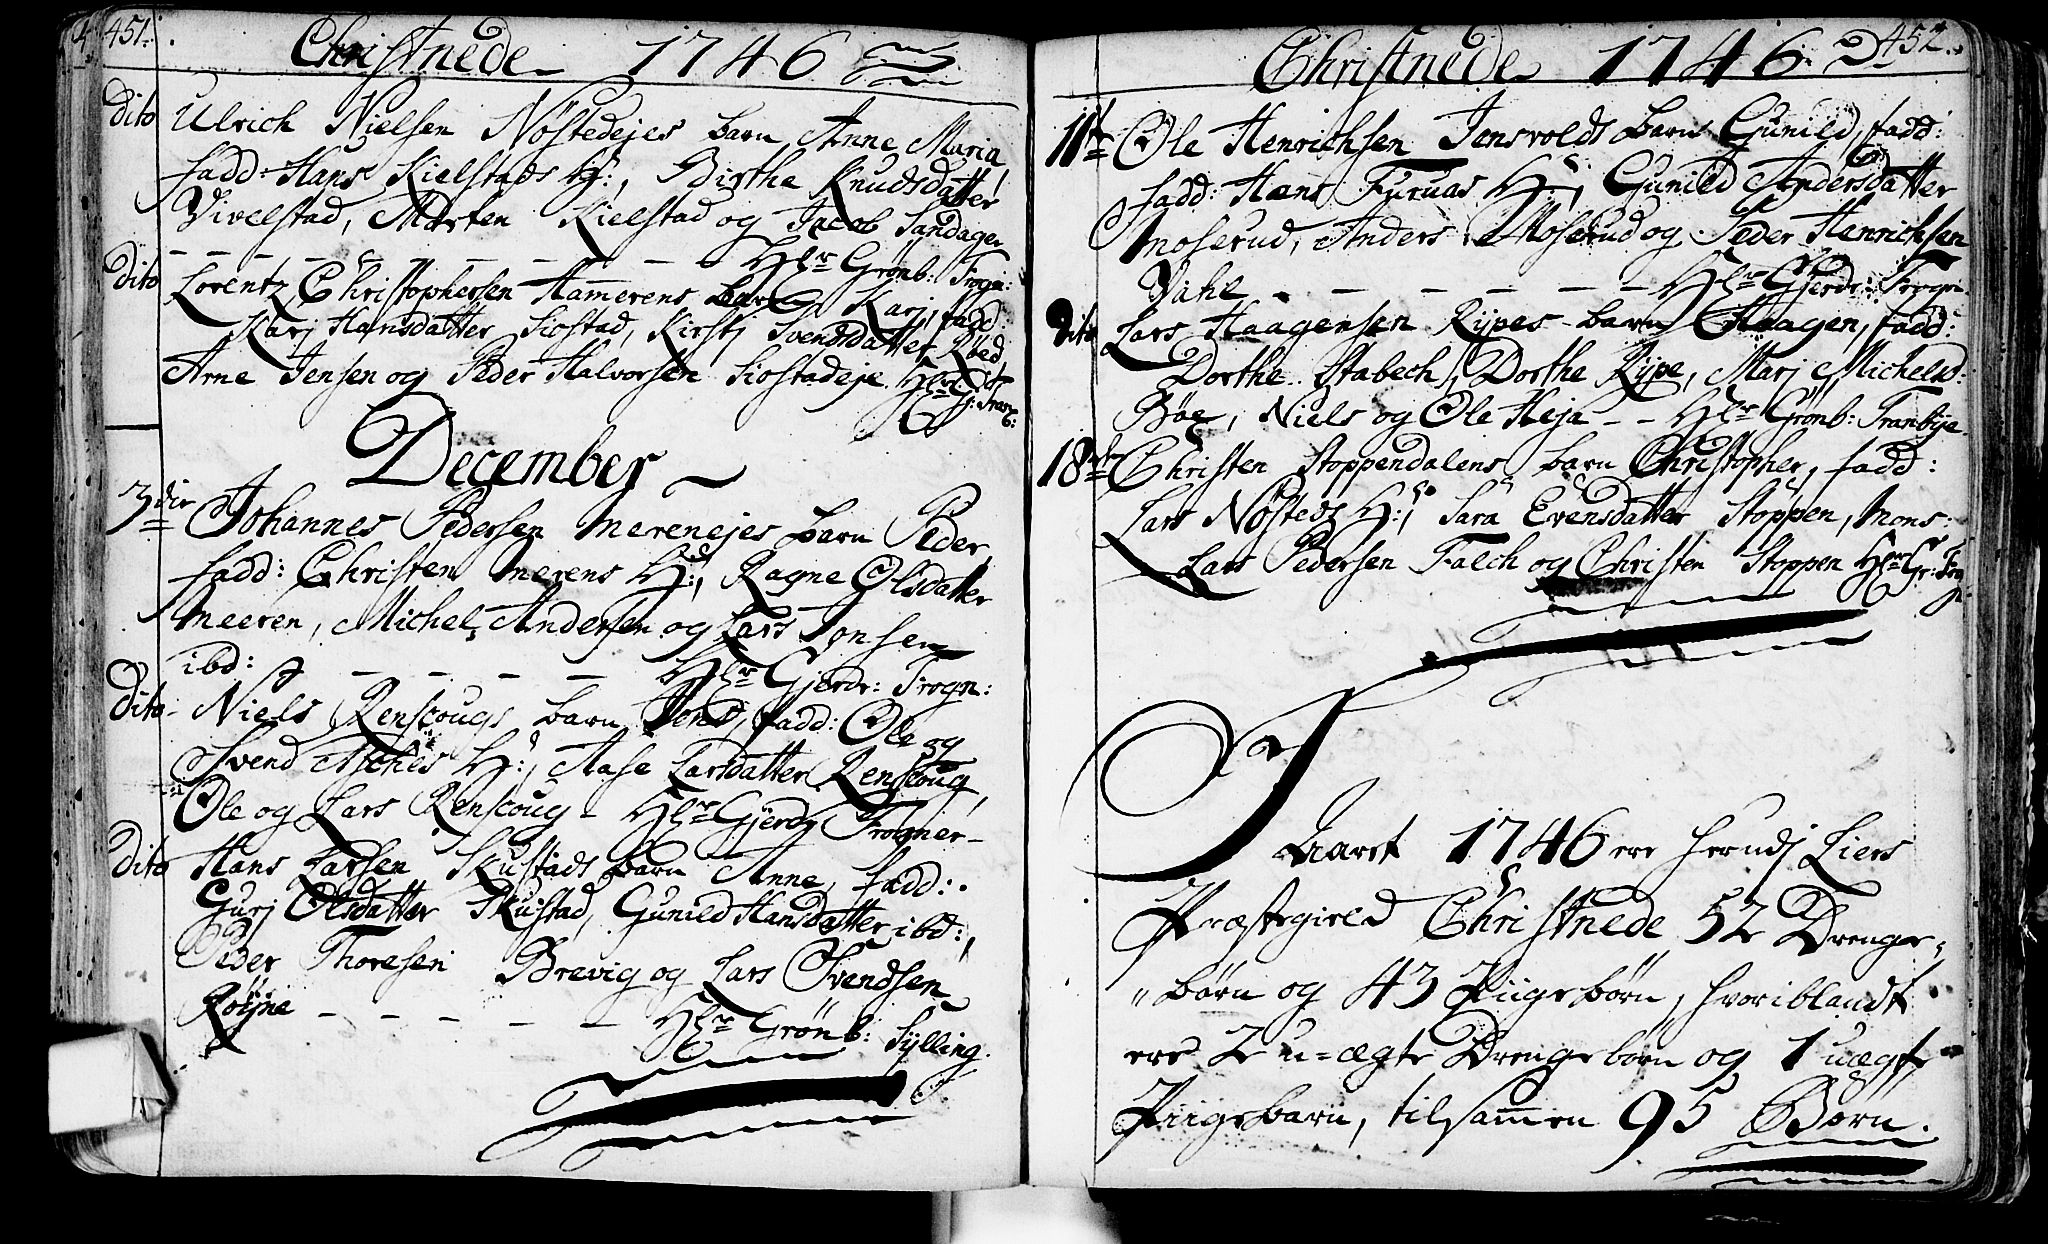 451.
Christnede 1746
dito Ulrich Nielsen Nøstedejes barn Anne Maria,
fadd: Hans Kielstads H:, Birthe Knudsdatter
Vivelstad, Morten Kielstad og Jacob Sandager
Hlr Grønb: Frogn:
dito Lorentz Christophersen Hamerens barn Karj, fadd:
Karj Hansdatter Siostad, Kirstj Svendsdatter
Arne Jensen og Peder Halvorsen Siostadeje
December
3die Johannes Pedersen Merenejes barn Peder
fadd: Christen Merens H:, Ragne Olsdatter
Meeren, Michel Andersen og Lars Jonsen
ibd: Hlr Gjerdr: Frogn:
Dito Niels Renscougs barn Jens, fadd: Ole og
Svend Aschis H:, Aase Larsdatter Renscoug,
Ole og Lars Renscoug - Hlr Gjerdr Frogner
dito Hans Larsen Skustads barn Anne, fadd:
Gurj Olsdatter Skustad, Gunild Hansdatter ibd:,
Peder Thoresen Brevig og Lars Svendsen
Røÿne Hlr Grønb: Sylling.
452.
Christnede 1746
11te Ole Henrichsen Jensvolds barn Gunild, fadd:
fadd: Hans Furuas H:, Gunild Andersdatter
Moserud, Anders Moserud og Peder Henrichsen
Vahl Hlr Gjerdr: Frogn:
dito Lars Haagensen Rÿpes barn Haagen, fadd:
Dorthe Stabech, Dorthe Rÿpe, Marj Michelsd:
Bøe, Niels og Ole Heja - - Hlr Grønb: Tranbye
18de Christen Stoppendalens barn Christopher, fadd:
Lars Nøsteds H:, Sara Evensdatter Stoppen, Mons:
Lars Pedersen Falch og Christen Stoppen Hlr Gr: Frogn:
I Aaret 1746 ere herudj Liers
Præstegield Christnede 52 Drenge-
børn og 43 Piigebørn, hvoriblandt
ere 2 u-ægte Drengebørn og 1 uægte
Piigebarn, tilsamen 95 Børn.